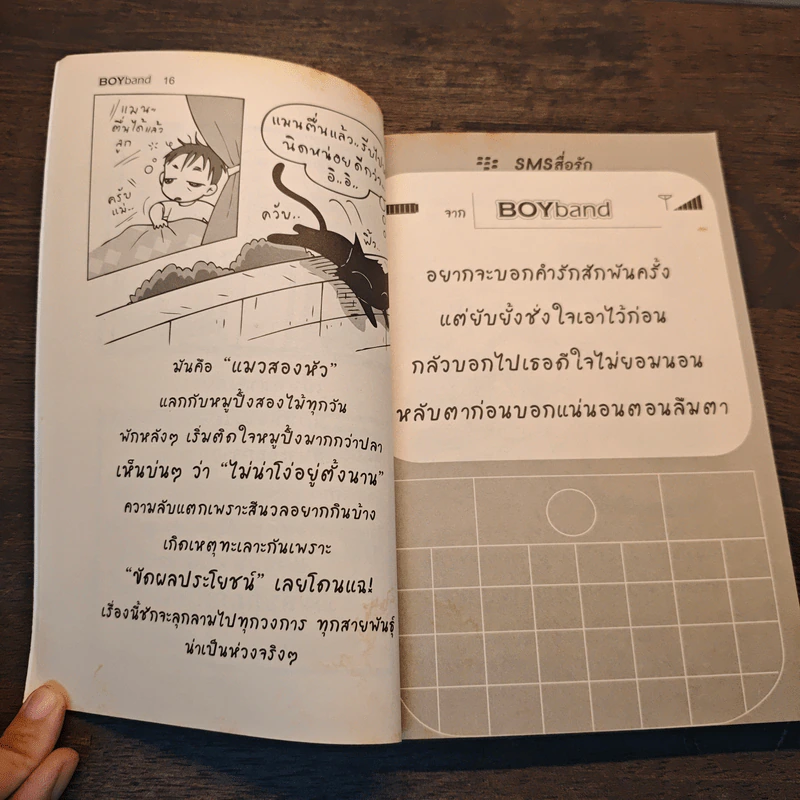 BOYband 16
แมน~
ตื่นได้แล้ว
ลูก
ครับ
แม่..
แมนตื่นแล้ว..รีบไป
นิดหน่อยดีกว่า
อิ..อิ..
ควับ..
ฟิ้ว
มันคือ “แมวสองหัว”
แลกกับหมูปิ้งสองไม้ทุกวัน
พักหลังๆ เริ่มติดใจหมูปิ้งมากกว่าปลา
เห็นบ่นๆ ว่า “ไม่น่าโง่อยู่ตั้งนาน”
ความลับแตกเพราะสีนวลอยากกินบ้าง
เกิดเหตุทะเลาะกันเพราะ
“ขัดผลประโยชน์” เลยโดนแฉ!
เรื่องนี้ชักจะลุกลามไปทุกวงการ ทุกสายพันธุ์
น่าเป็นห่วงจริงๆ
SMSสื่อรัก
จาก BOYband
อยากจะบอกคำรักสักพันครั้ง
แต่ยับยั้งชั่งใจเอาไว้ก่อน
กลัวบอกไปเธอดีใจไม่ยอมนอน
หลับตาก่อนบอกแน่นอนตอนลืมตา